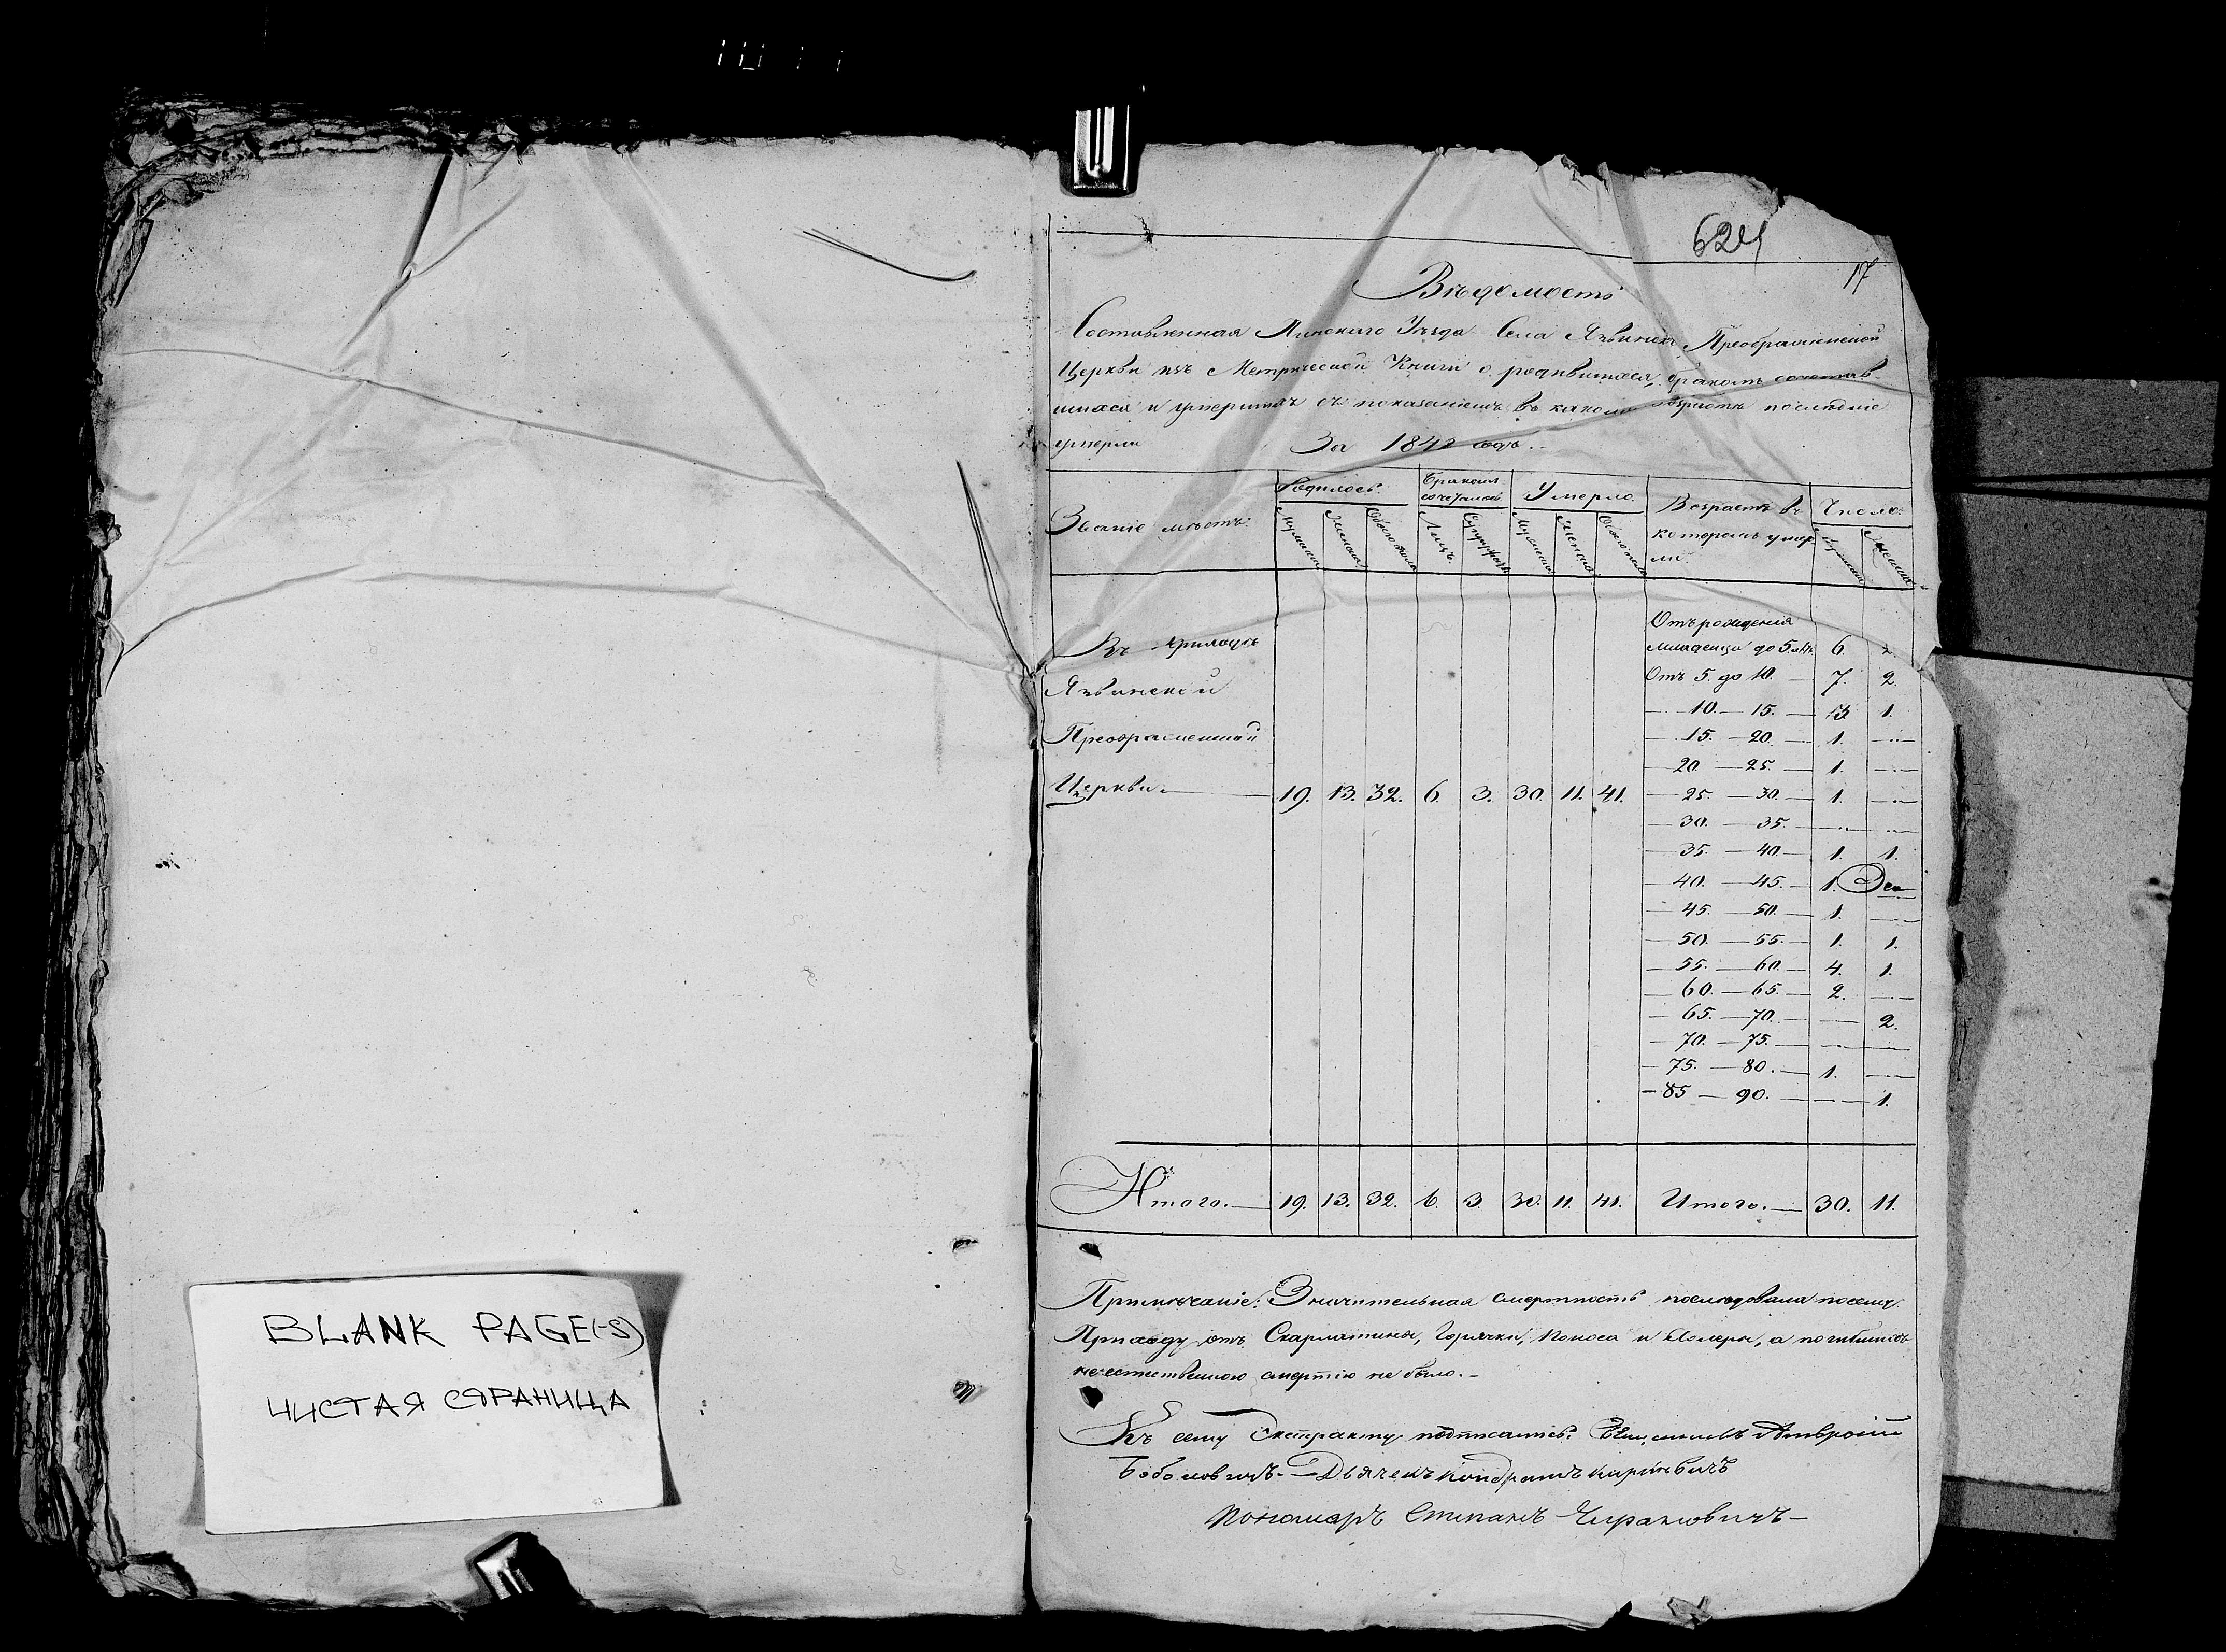 BLANK PAGE(-S)
ЧИСТАЯ СТРАНИЦА
624
17
Вѣдомость
Составленная Пинскаго Уѣзда Села Преображенской
Церкви изъ Метрической Книги о родившихся, бракомъ сочетав-
шихся и умершихъ съ показаніемъ въ какомъ возрастѣ послѣдніе
умерли За 1842 годъ.
Званіе мѣстъ. Родилось. Бракомъ сочеталось Умерло. Возрастъ въ которомъ умерли. Число.
Мужеска Женска Обоего пола Лицъ. Супружествъ Мужеска Женска Обоего пола Мужеска Женска
Отъ рожденія
Въ приходѣ младенца до 5. лѣтъ 6. 2.
Язвинской Отъ 5. до 10. — 7. 2.
— 10. — 15. — 1.
Преображенской — 15. — 20. — 1. —
— 20. — 25. — 1. —
Церкви — 19. 13. 32. 6. 3. 30. 11. 41. — 25. — 30. — 1. —
— 30. — 35. — — —
— 35. — 40. — 1. 1.
— 40. — 45. — 1.
— 45. — 50. — 1. —
— 50. — 55. — 1. 1.
— 55. — 60. — 4. 1.
— 60. — 65. — 2. —
— 65. — 70. — — 2.
— 70. — 75. — — —
— 75. — 80. — 1. —
— 85 — 90. — — 1.
Итого. — 19. 13. 32. 6. 3. 30. 11. 41. Итого. — 30. 11.
Примѣчаніе: Значительная смертность послѣдовала по сему
Приходу отъ Скарлатины, Горячки, Поноса и Холеры, а погибшихъ
неестественною смертію не было. —
Къ сему Экстракту подписались: Священникъ Амвросій
Дьячекъ Кондратъ
Пономарь Стипанъ